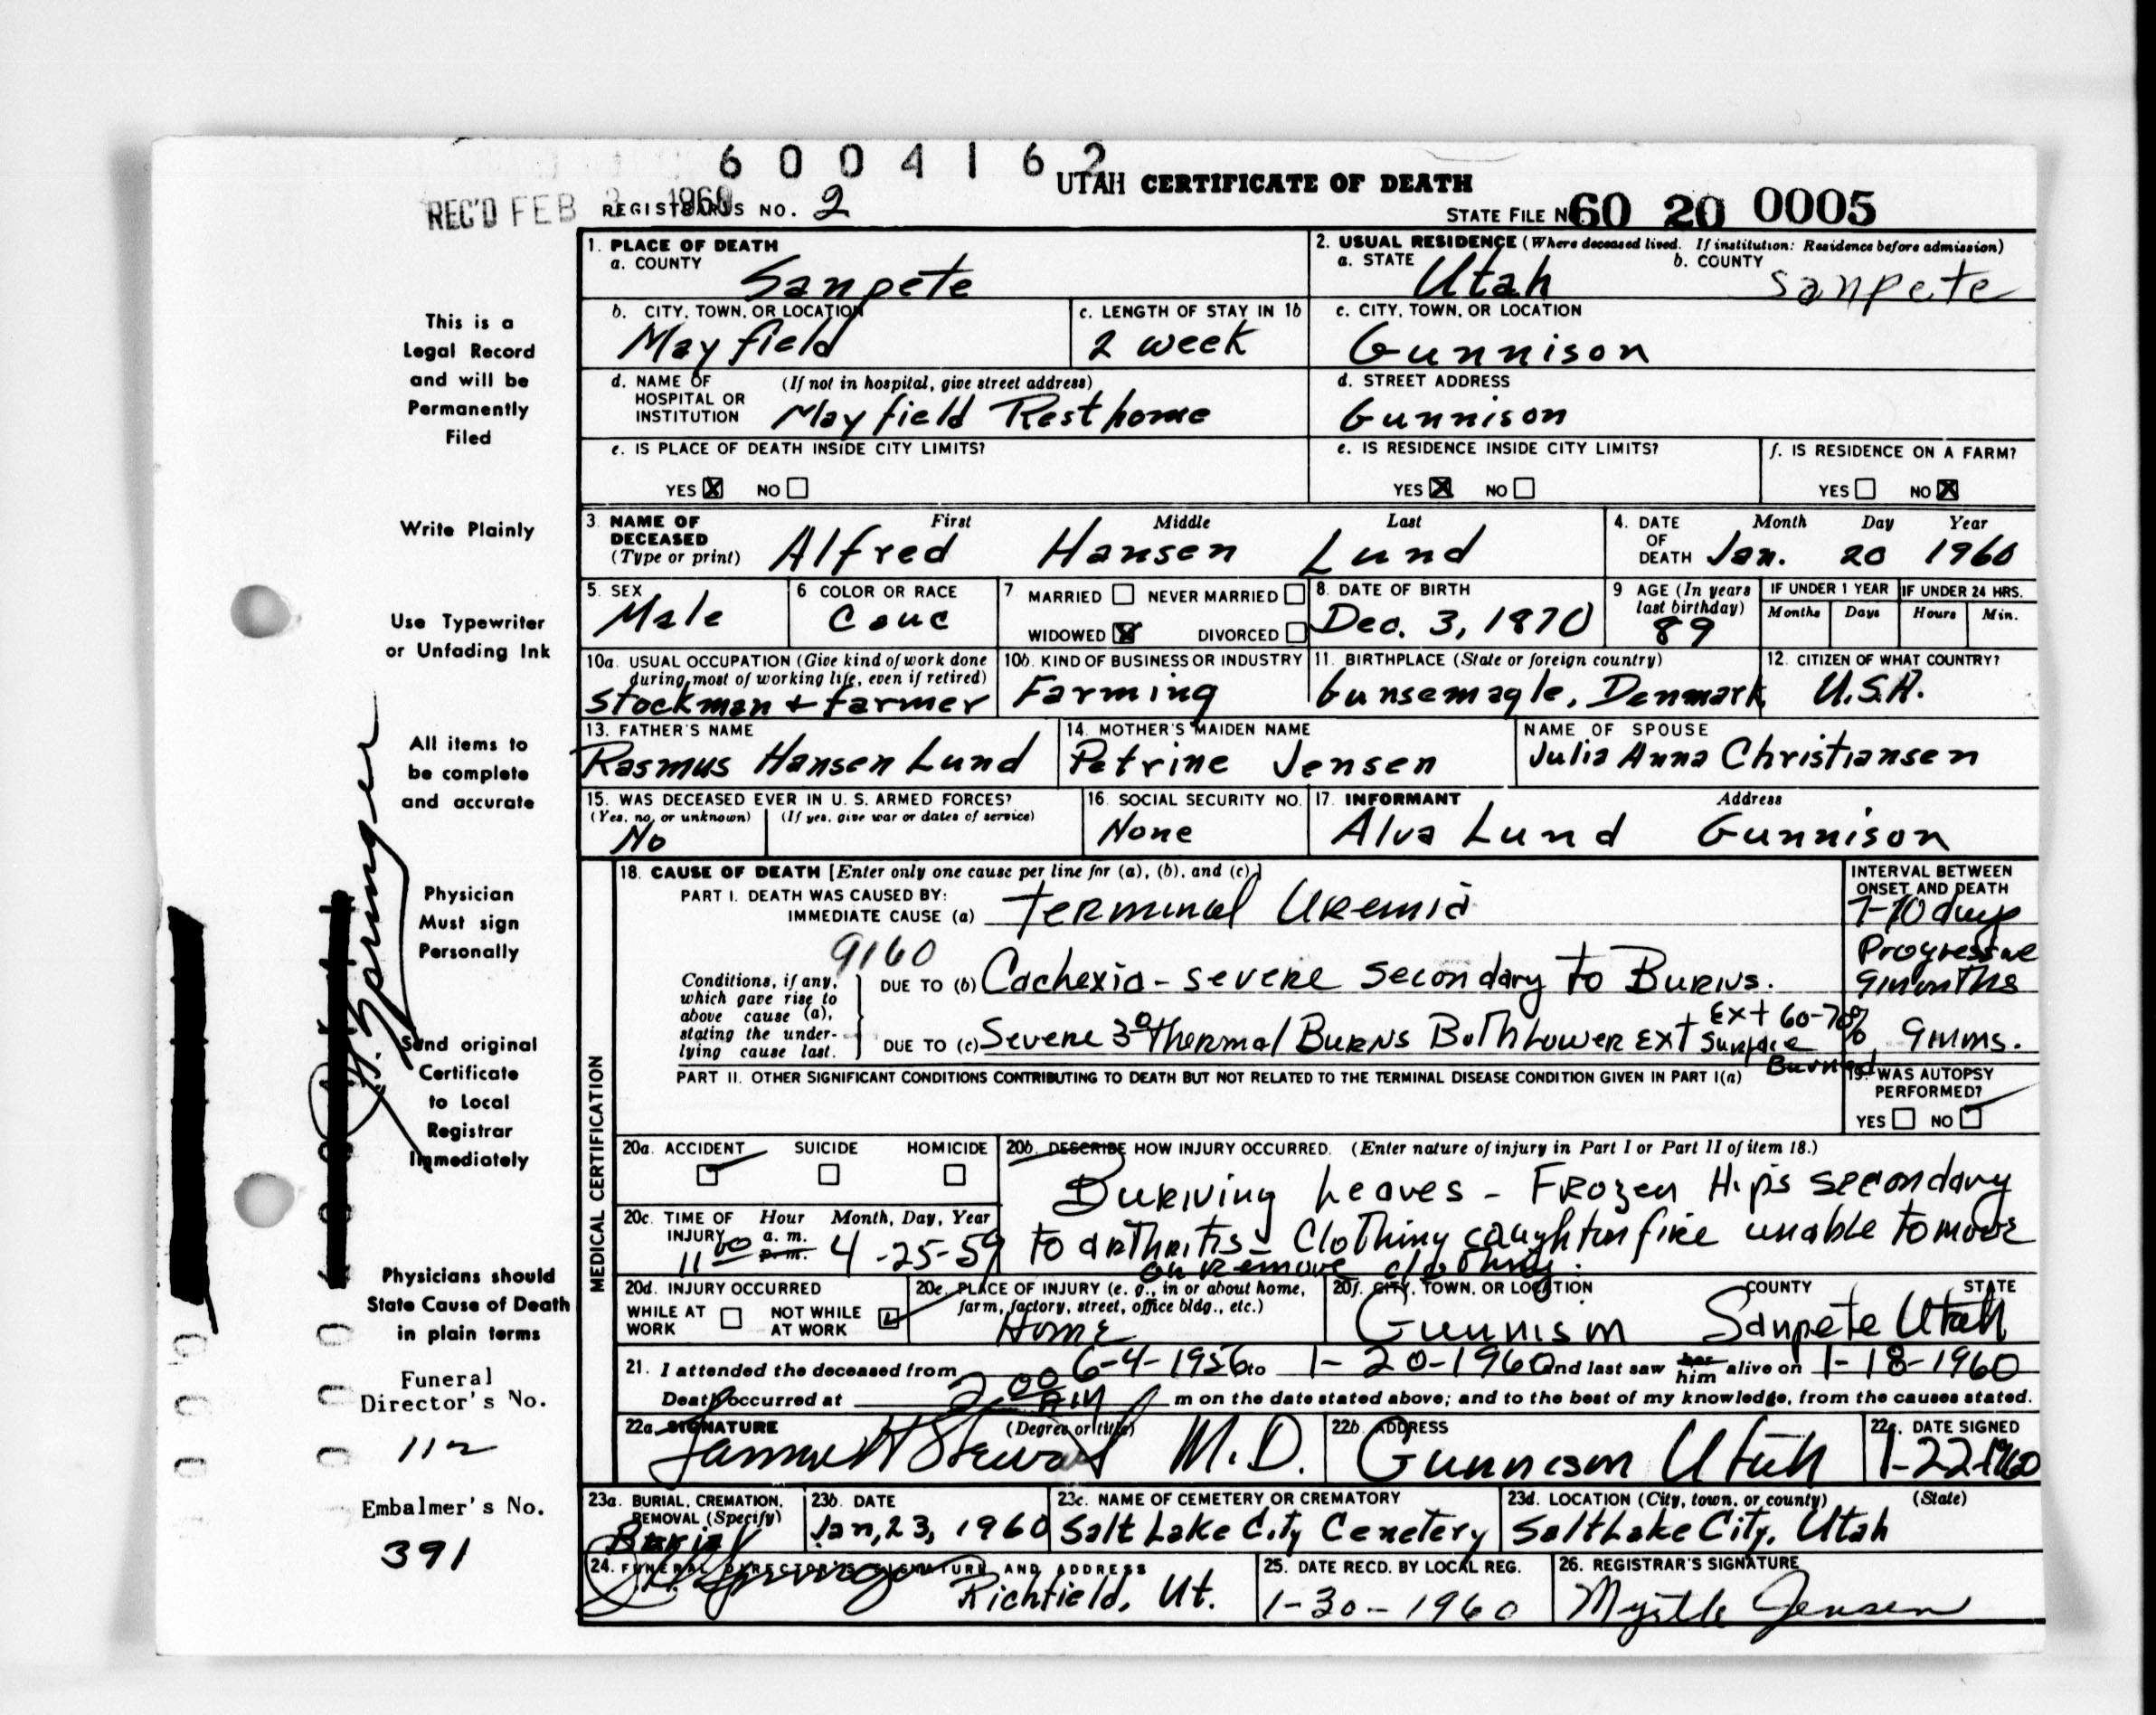 6 0 0 4 1 6 2
UTAH CERTIFICATE OF DEATH
REC'D FEB 1960
REGISTRAR'S NO. 2
STATE FILE NO. 60 20 0005
1. PLACE OF DEATH
a. COUNTY Sanpete
2. USUAL RESIDENCE (Where deceased lived. If institution: Residence before admission)
a. STATE Utah b. COUNTY Sanpete
b. CITY, TOWN, OR LOCATION Mayfield
c. LENGTH OF STAY IN 1b 2 week
c. CITY, TOWN, OR LOCATION Gunnison
d. NAME OF HOSPITAL OR INSTITUTION (If not in hospital, give street address) Mayfield Rest home
d. STREET ADDRESS Gunnison
e. IS PLACE OF DEATH INSIDE CITY LIMITS? YES X NO
e. IS RESIDENCE INSIDE CITY LIMITS? YES X NO
f. IS RESIDENCE ON A FARM? YES NO X
3. NAME OF DECEASED (Type or print) First Middle Last
Alfred Hansen Lund
4. DATE OF DEATH Month Day Year
Jan. 20 1960
5. SEX Male
6 COLOR OR RACE Cauc
7 MARRIED NEVER MARRIED
WIDOWED X DIVORCED
8. DATE OF BIRTH Dec. 3, 1870
9 AGE (In years last birthday) 89
IF UNDER 1 YEAR Months Days
IF UNDER 24 HRS. Hours Min.
10a. USUAL OCCUPATION (Give kind of work done during most of working life, even if retired)
Stockman + farmer
10b. KIND OF BUSINESS OR INDUSTRY Farming
11. BIRTHPLACE (State or foreign country) Gunsemagle, Denmark
12. CITIZEN OF WHAT COUNTRY? U.S.A.
13. FATHER'S NAME Rasmus Hansen Lund
14. MOTHER'S MAIDEN NAME Petrine Jensen
NAME OF SPOUSE Julia Anna Christiansen
15. WAS DECEASED EVER IN U. S. ARMED FORCES?
(Yes, no, or unknown) (If yes, give war or dates of service)
No
16. SOCIAL SECURITY NO. None
17. INFORMANT Address
Alva Lund Gunnison
MEDICAL CERTIFICATION
18. CAUSE OF DEATH [Enter only one cause per line for (a), (b), and (c)]
PART I. DEATH WAS CAUSED BY:
IMMEDIATE CAUSE (a) Terminal Uremia
INTERVAL BETWEEN ONSET AND DEATH
7-10 days
9160
Conditions, if any, which gave rise to above cause (a), stating the underlying cause last.
DUE TO (b) Cachexia - severe secondary to Burns.
Progressive 9 months
DUE TO (c) Severe 3° Thermal Burns Both Lower Ext Ext 60-70% Surface Burned
9 mms.
PART II. OTHER SIGNIFICANT CONDITIONS CONTRIBUTING TO DEATH BUT NOT RELATED TO THE TERMINAL DISEASE CONDITION GIVEN IN PART I(a)
19. WAS AUTOPSY PERFORMED?
YES NO
20a. ACCIDENT SUICIDE HOMICIDE
20b. DESCRIBE HOW INJURY OCCURRED. (Enter nature of injury in Part I or Part II of item 18.)
Burning Leaves - Frozen Hips secondary
to arthritis - Clothing caught on fire unable to move
or remove clothing.
20c. TIME OF INJURY Hour a. m. p. m. Month, Day, Year
11 00 4-25-59
20d. INJURY OCCURRED
WHILE AT WORK NOT WHILE AT WORK
20e. PLACE OF INJURY (e. g., in or about home, farm, factory, street, office bldg., etc.)
Home
20f. CITY, TOWN, OR LOCATION COUNTY STATE
Gunnison Sanpete Utah
21. I attended the deceased from 6-4-1956 to 1-20-1960 and last saw her him alive on 1-18-1960
Death occurred at 2 00 AM m on the date stated above; and to the best of my knowledge, from the causes stated.
22a. SIGNATURE (Degree or title)
Stewart M.D.
22b. ADDRESS Gunnison Utah
22c. DATE SIGNED 1-22-1960
23a. BURIAL, CREMATION, REMOVAL (Specify) Burial
23b. DATE Jan, 23, 1960
23c. NAME OF CEMETERY OR CREMATORY Salt Lake City Cemetery
23d. LOCATION (City, town, or county) (State) Salt Lake City, Utah
24. FUNERAL DIRECTOR'S SIGNATURE AND ADDRESS
Springer Richfield, Ut.
25. DATE RECD. BY LOCAL REG. 1-30-1960
26. REGISTRAR'S SIGNATURE Myrtle Jensen
This is a
Legal Record
and will be
Permanently
Filed
Write Plainly
Use Typewriter
or Unfading Ink
All items to
be complete
and accurate
Physician
Must sign
Personally
Send original
Certificate
to Local
Registrar
Immediately
Physicians should
State Cause of Death
in plain terms
Funeral
Director's No.
112
Embalmer's No.
391
Springer